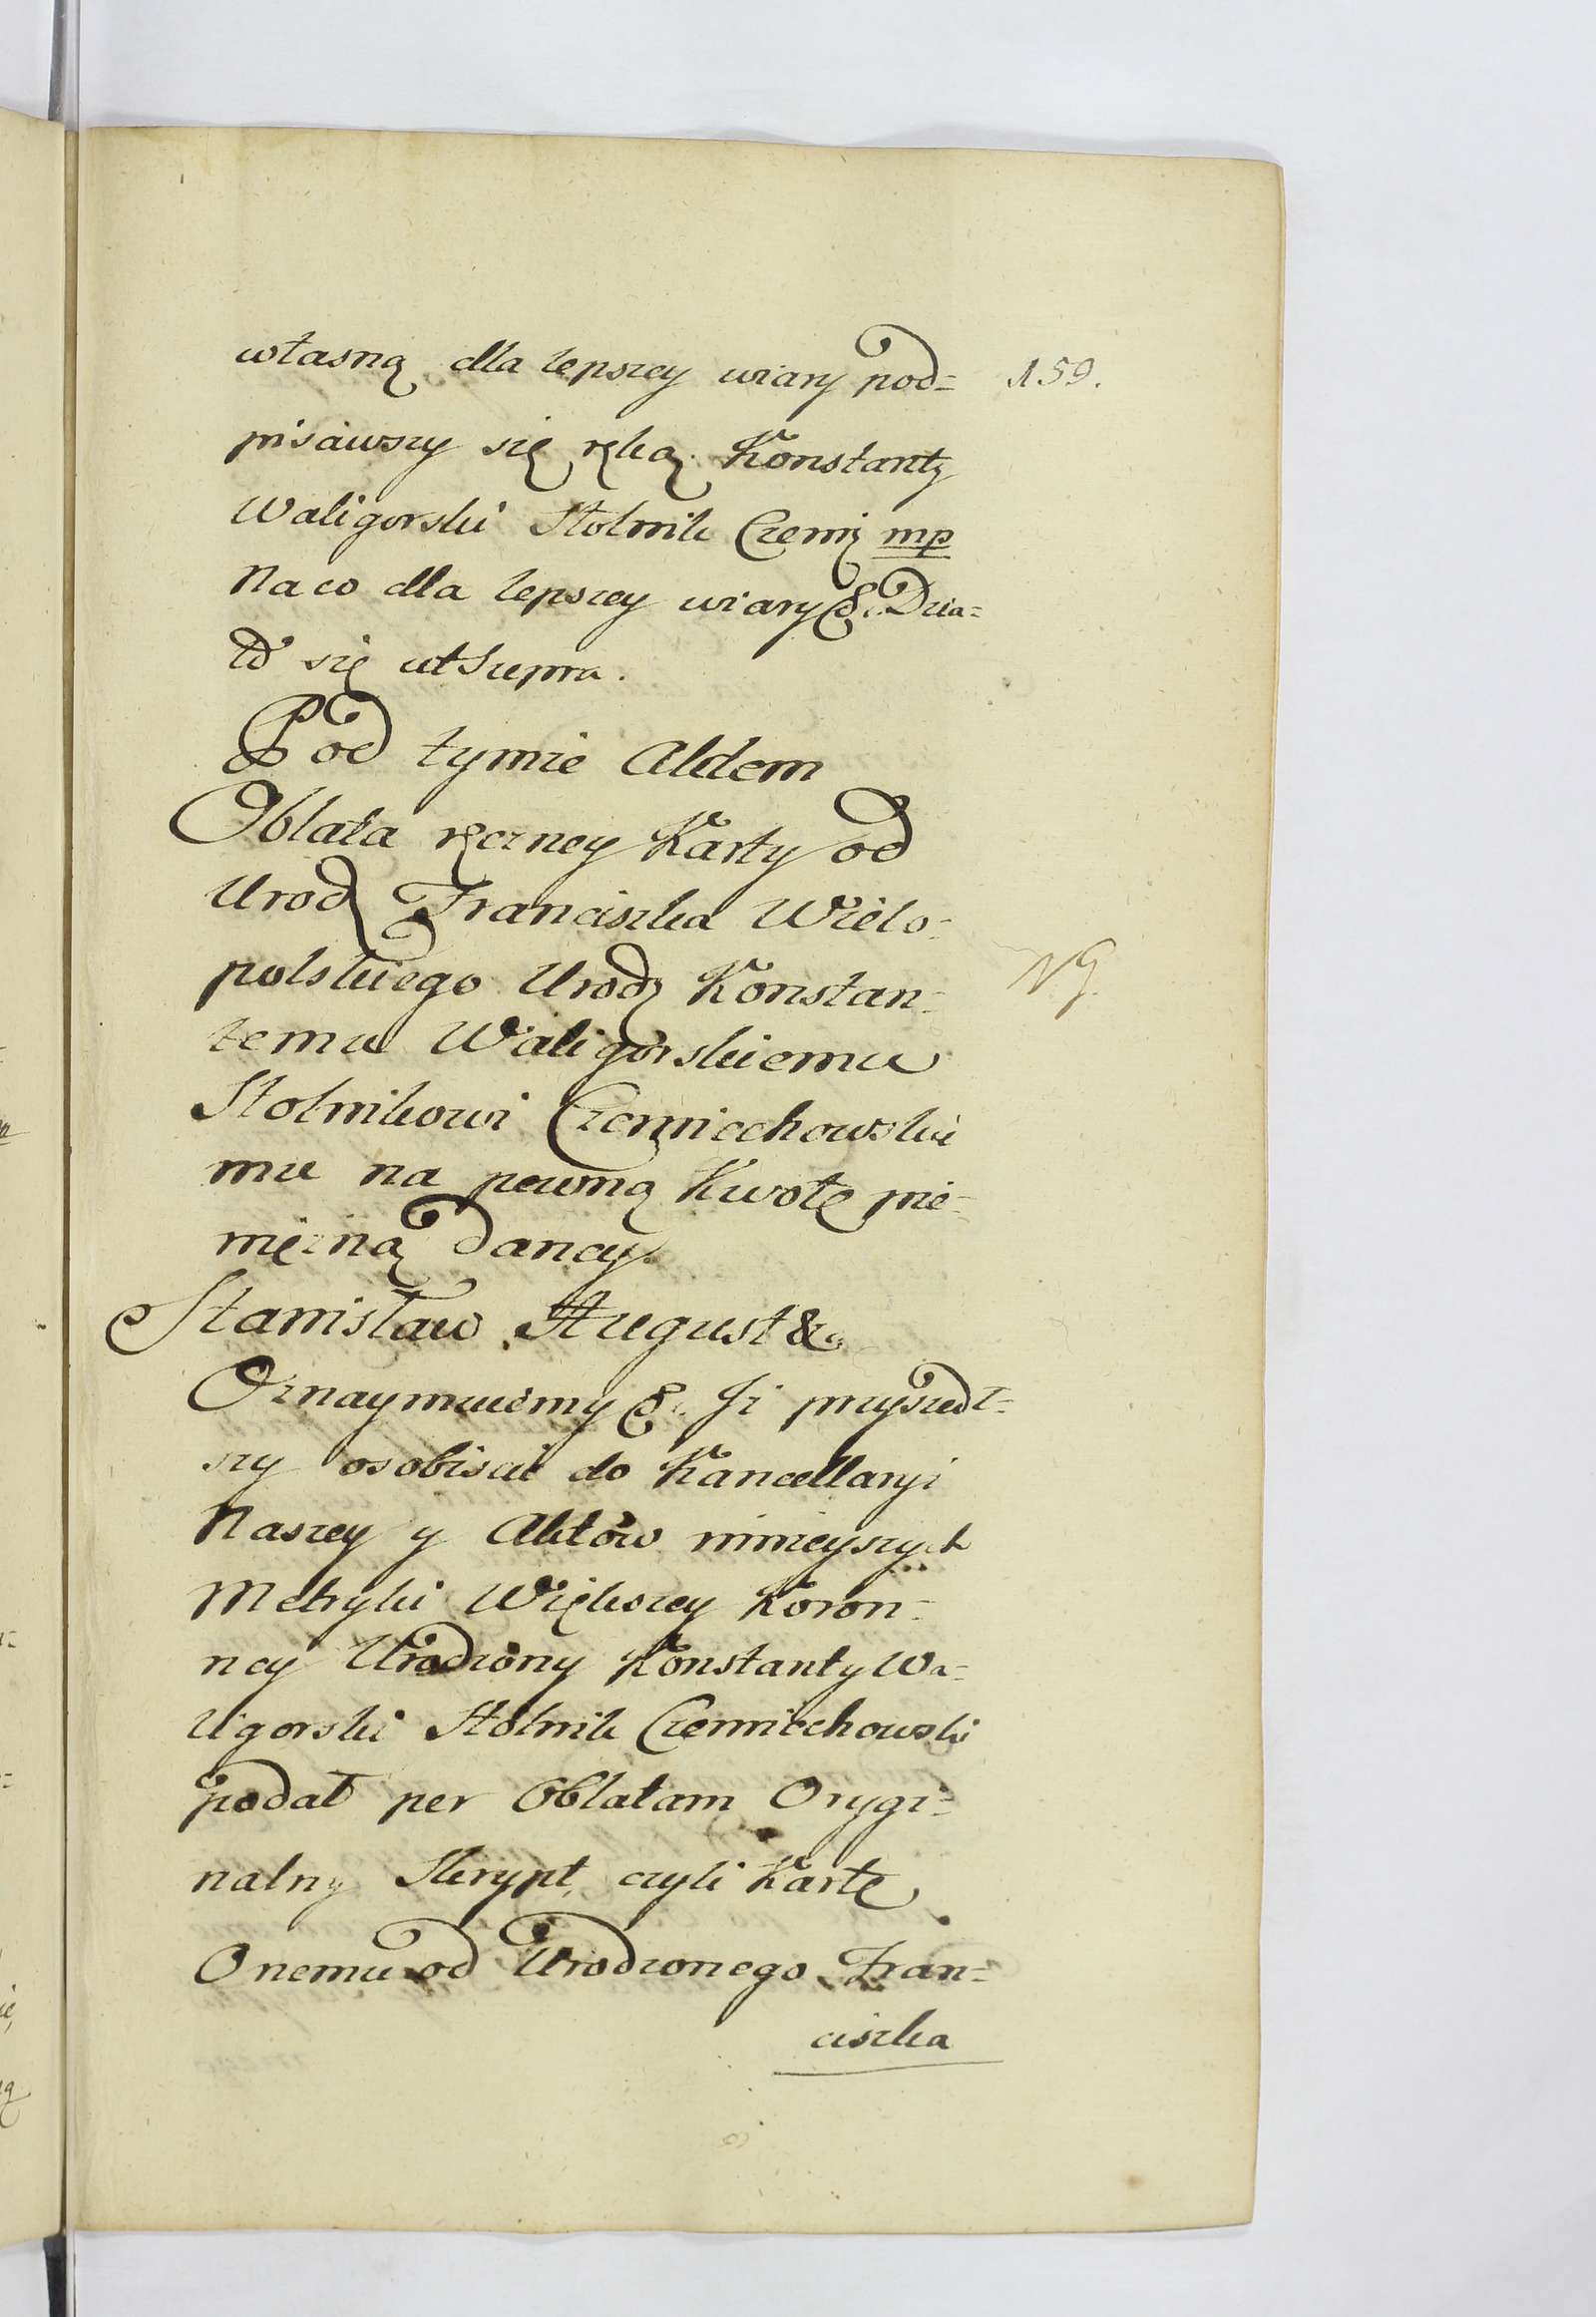 własną dla lepszey wiary pod=
159.
pisawszy się ręką. Konstanty
Waligorski Stolnik Czernię mp
Na co dla lepszey wiary &c. Dzia=
ło się ut Supra.
Pod tymże Aktem
Oblata ręczney Karty od
Urodz Franciszka Wielo=
polskiego Urodz Konstan=
NG.
temu Waligorskiemu
Stolnikowi Czerniechowskie
mu na pewną Kwotę pie=
niężną daney.
Stanisław August &c
Oznaymuiemy &c. Iż przyszedł=
szy osobiscie do Kancellaryi
Naszey y Aktów ninieyszych
Metryki Większey Koron=
ney Urodzony Konstanty Wa=
ligorski Stolnik Czerniechowski
podał per Oblatam Orygi=
nalny Skrypt, czyli Kartę
Onemu od Urodzonego Fran=
ciszka